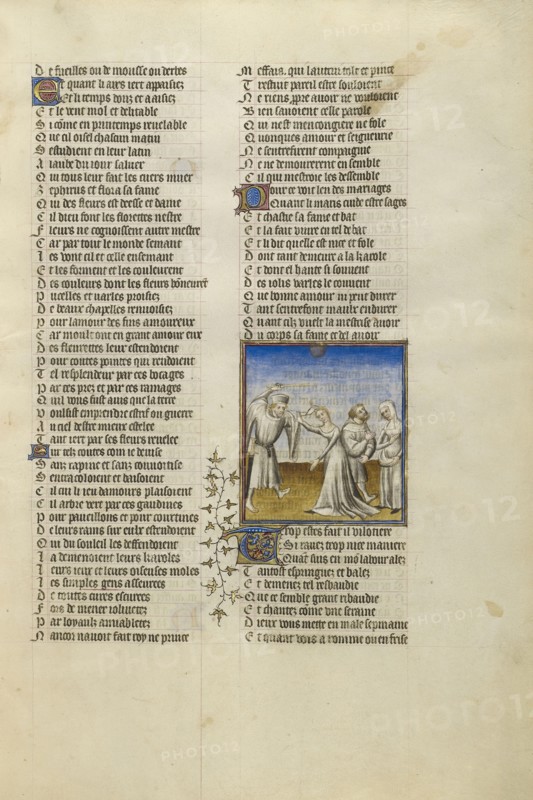 De fueilles ou de mousse ou derbes
Et quant li aires iert appaisiez
Et li temps douz et aaisiez
Et le vent mol et delitable
Si come en printemps renelable
Que cil oisel chascun matin
Sestudient en leur latin
A laude du iour saluer
Qui tous leur fait les cuers muer
Zephirus et flora sa fame
Qui des fleurs est deesse et dame
Cil dieu font les florettes nestre
Fleurs ne cognoissent autre mestre
Car par tout le monde semant
Les vont cil et celle ensemant
Et les forment et les couleurent
Des couleurs dont les fleurs honeurent
Pucelles et varles proisiez
De beaux chapelles renvoisiez
Pour lamour des fins amoureux
Car moult ont en grant amour eux
Des fleurettes leur estendoient
Pour coutes pointes qui rendoient
Tel resplendeur par ces bocages
Par ces prez et par ces ramages
Quil vous fust auis que la terre
Voulsist emprendre estrif ou guerre
Au ciel destre mieux estelee
Tant iert par ses fleurs reuelee
Sur telz coutes com ie deuise
Sanz rapine et sanz couuoitise
Sentracoloient et baisoient
Cil cui li ieu damours plaisoient
Cil arbre vert par ces gaudines
Pour paueillons et pour courtines
De leurs rains sur eulx estendoient
Qui du souleil les deffendoient
La demenoient leurs karoles
Leurs ieux et leurs oiseuses moles
Les simples gens asseurees
De toutes cures escurees
Fors de mener ioliuetez
Par loyaulx amiabletez
Nancor nauoit fait roy ne prince
Meffais qui lautrui tolt et pince
Trestuit pareil estre souloient
Ne riens ppre auoir ne vouloient
Bien sauoient celle parole
Qui nest mencongiere ne fole
Quonques amour et seigneurie
Ne sentrefirent compaignie
Ne ne demourerent ensemble
Cil qui mestroie les dessemble
Pour ce voit len des mariages
Quant li maris cuide estre sages
Et chastie sa fame et bat
Et la fait viure en tel debat
Et li dit quelle est nice et fole
Dont tant demeure a la karole
Et dont el hante si souuent
Des iolis varles le couuent
Que bonne amour ni peut durer
Tant sentrefont maulx endurer
Quant cilz vuelt la mestrise auoir
Du corps sa fame et del auoir
Trop estes fait il vilotiere
Si rauez trop nice maniere
Quant suis en mon labour alez
Tantost espringuez et balez
Et demenez tel resbaudie
Que ce semble grant ribaudie
Et chantez come vne seraine
Dieux vous mette en male sepmaine
Et quant vois a romme ou en frise
PHOTO12